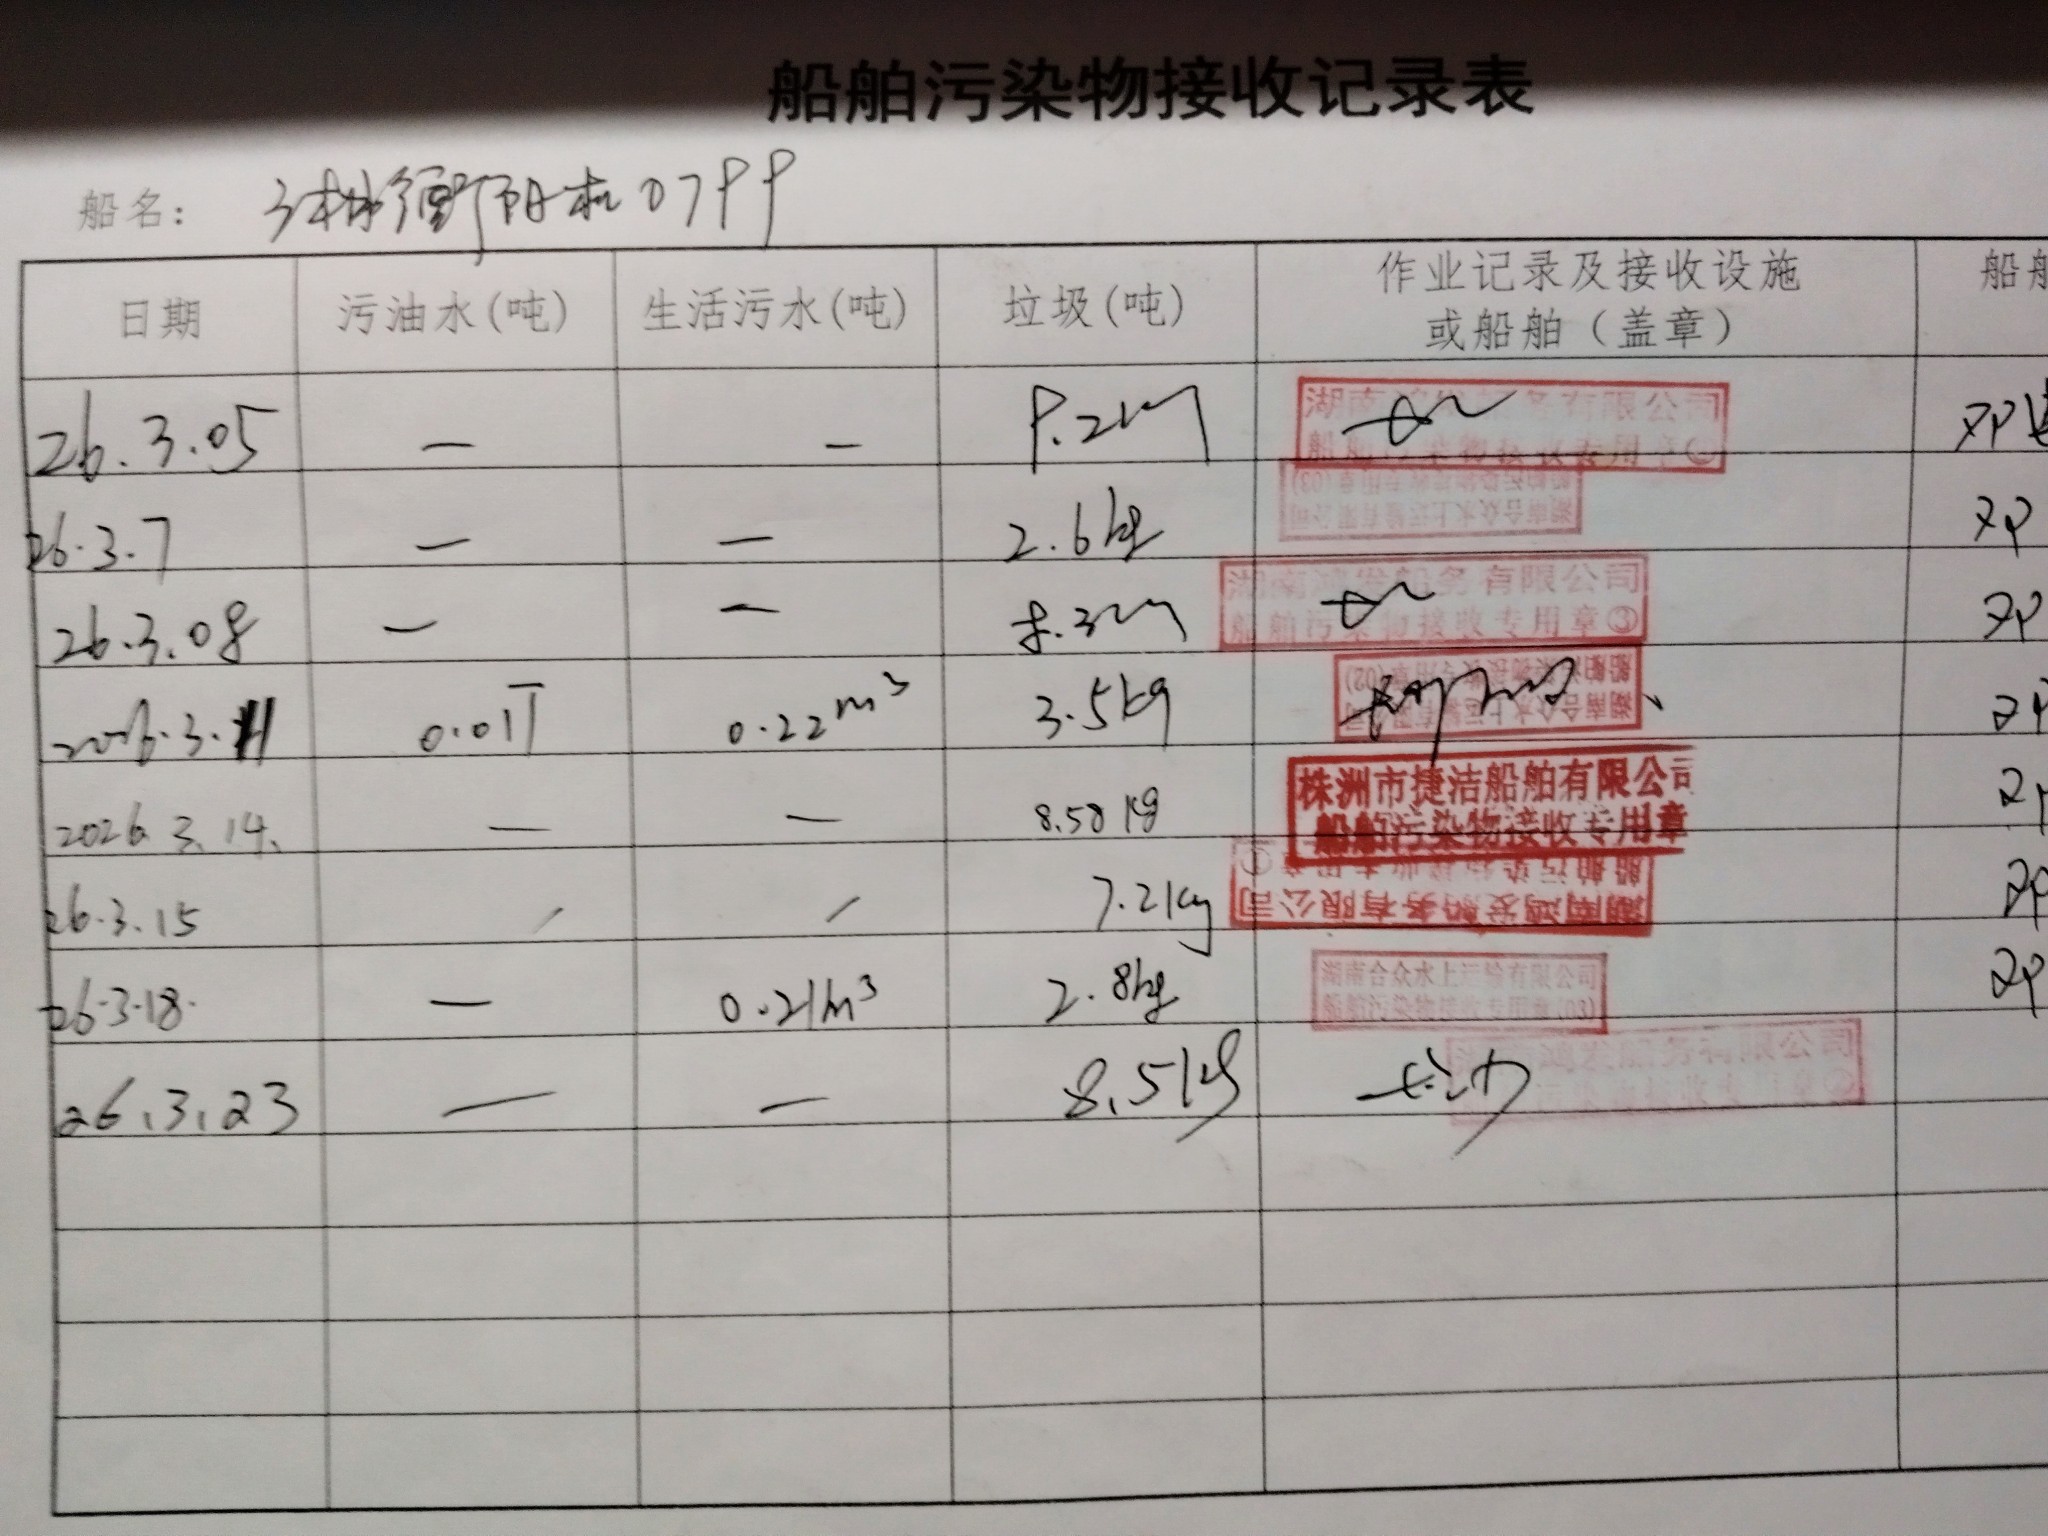 船舶污染物接收记录表
船名： 衡阳机07
日期 污油水(吨) 生活污水(吨) 垃圾(吨) 作业记录及接收设施或船舶（盖章） 船舶
26.3.05 — — 湖南 务有限公司
26.3.7 — — 2.6kg 湖南合众水上运输有限公司 船舶污染物接收专用章(03)
26.3.08 — — 8.3 湖南鸿发船务有限公司 船舶污染物接收专用章③
2026.3.11 0.01T 0.22m³ 3.5kg 湖南合众水上运输有限公司 船舶污染物接收专用章(02)
2026.3.14. — — 8.58kg 株洲市捷洁船舶有限公司 船舶污染物接收专用章
26.3.15 / / 7.2kg 湖南鸿发船务有限公司 船舶污染物接收专用章①
26.3.18. — 0.21m³ 2.8kg 湖南合众水上运输有限公司 船舶污染物接收专用章(03)
26.3.23 — — 8.5kg 鸿发船务有限公司